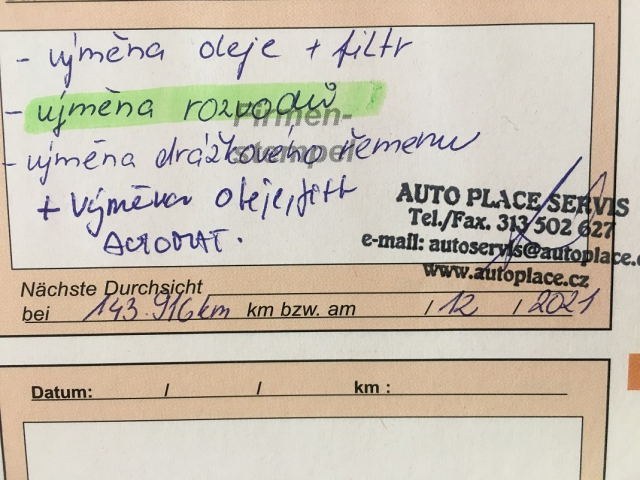 - výměna oleje + filtr
- výměna rozvodů
Firmen-
stempel
- výměna drážkového řemenu
+ výměna oleje, filtr
AUTO PLACE SERVIS
Tel./Fax. 313 502 627
e-mail: autoservis@autoplace.c
www.autoplace.cz
Nächste Durchsicht
bei 143.916 km km bzw. am / 12 / 2021
Datum: / / km :